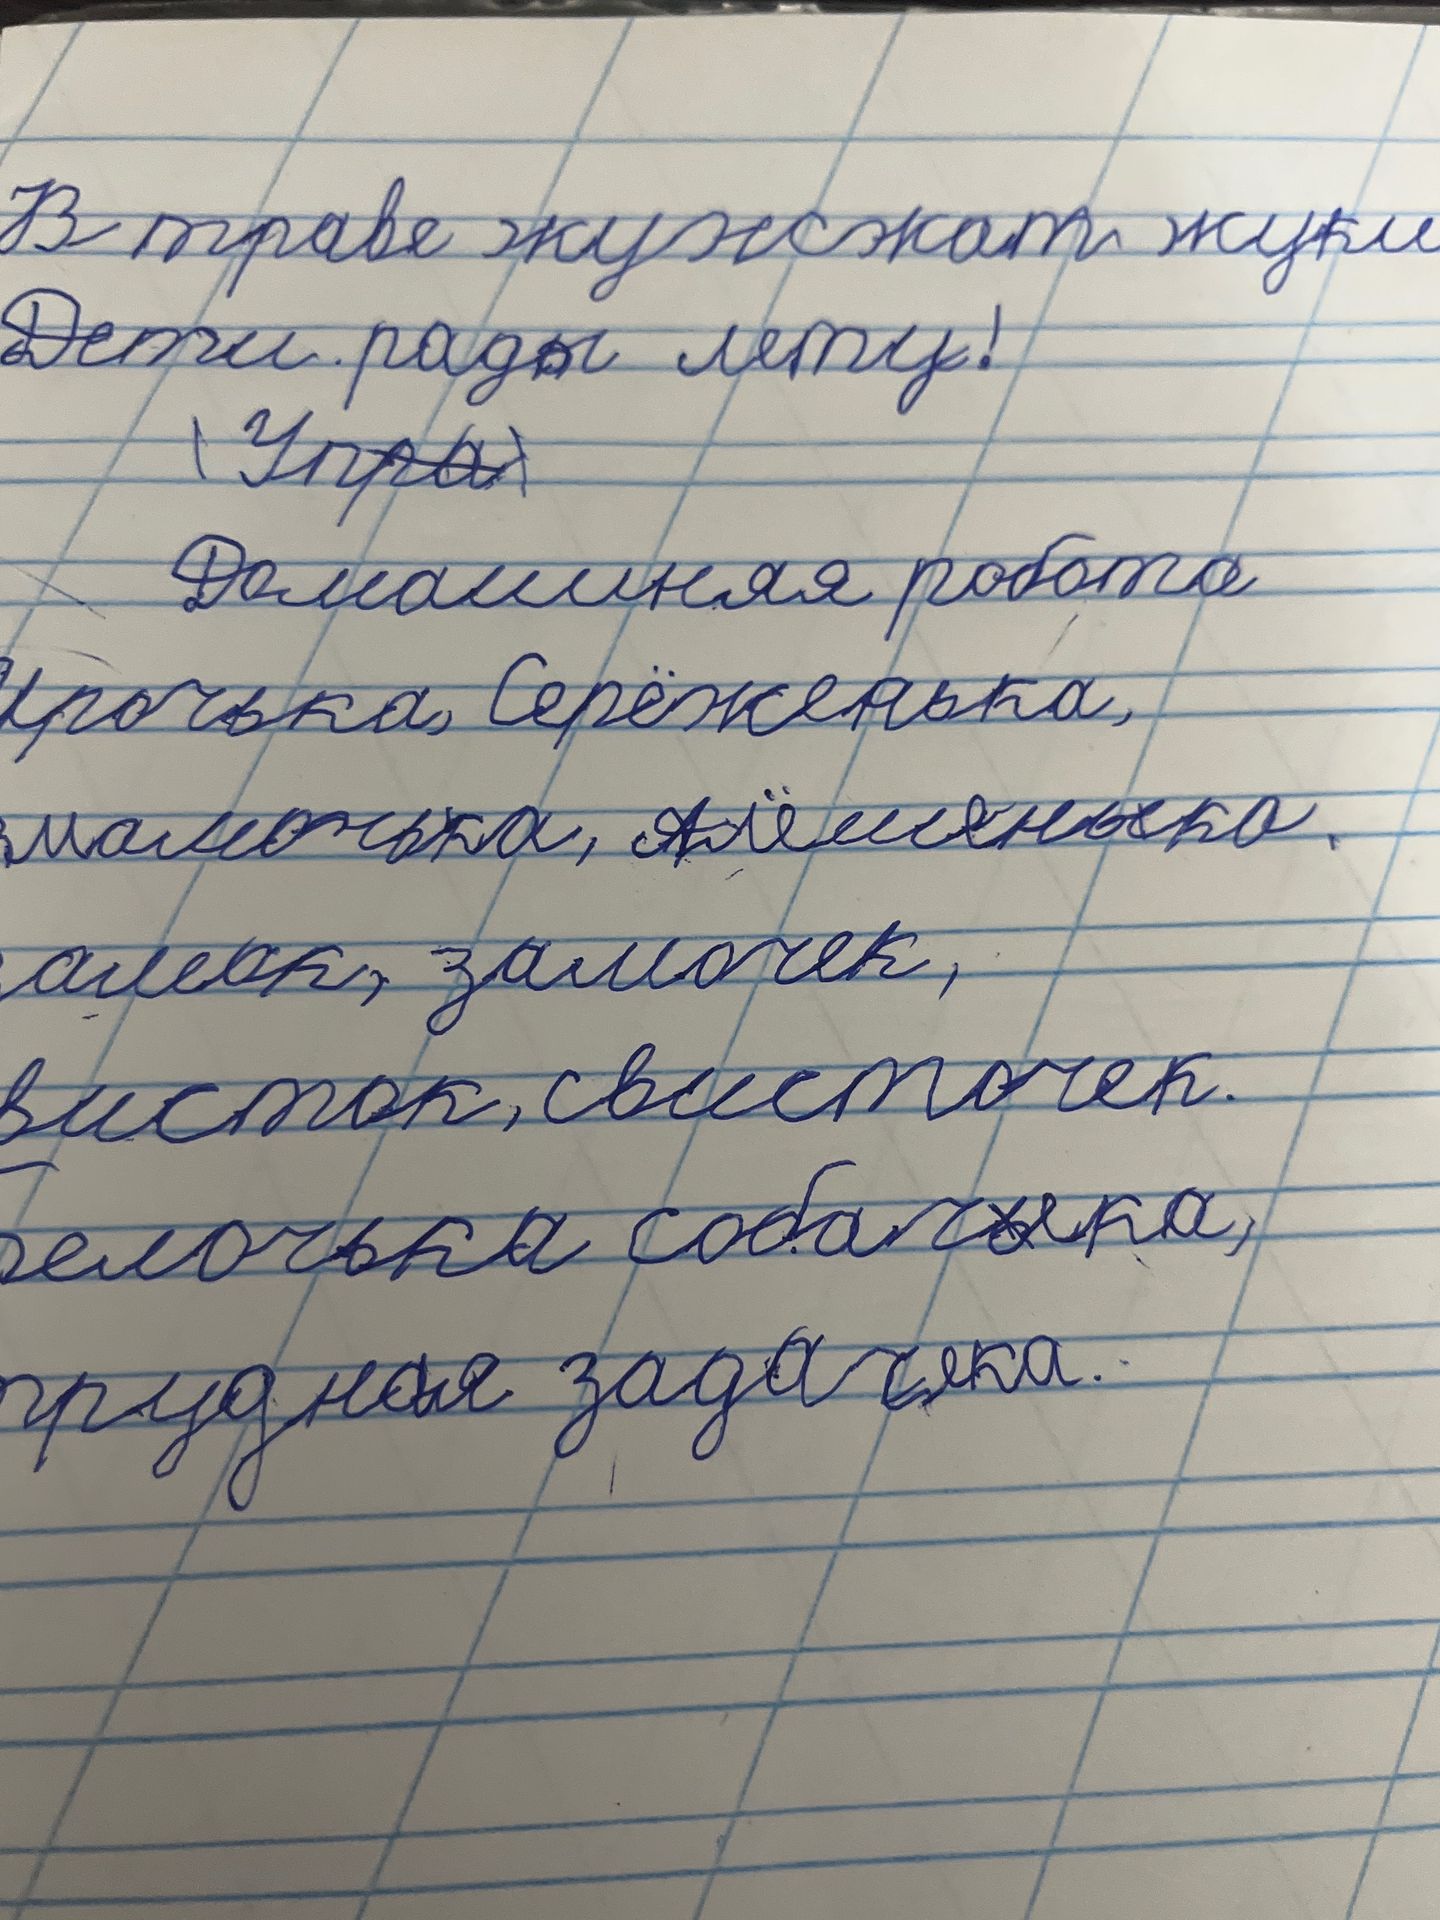 В траве жужжат жуки
Дети рады лету!
(Упра)
Домашняя робота
Ирочька, Серёженька,
мамочька, Алёшенька.
замок, замочек,
свисток, свисточек.
Белочька собачька,
трудная задачка.